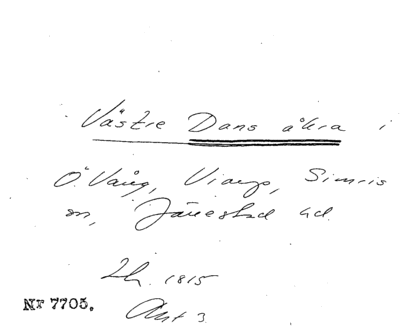 Västre Dans åkra i
Ö. Vång, Viarps, Simris
sn, Järrestad hd.
Lh. 1815
Akt 3
Nr 7705.